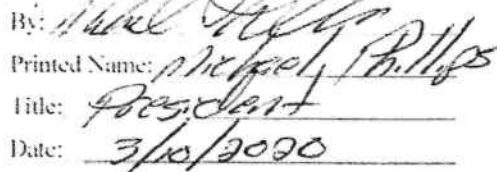 By:
Printed Name: Michael Phillips
Title: President
Date: 3/10/2020